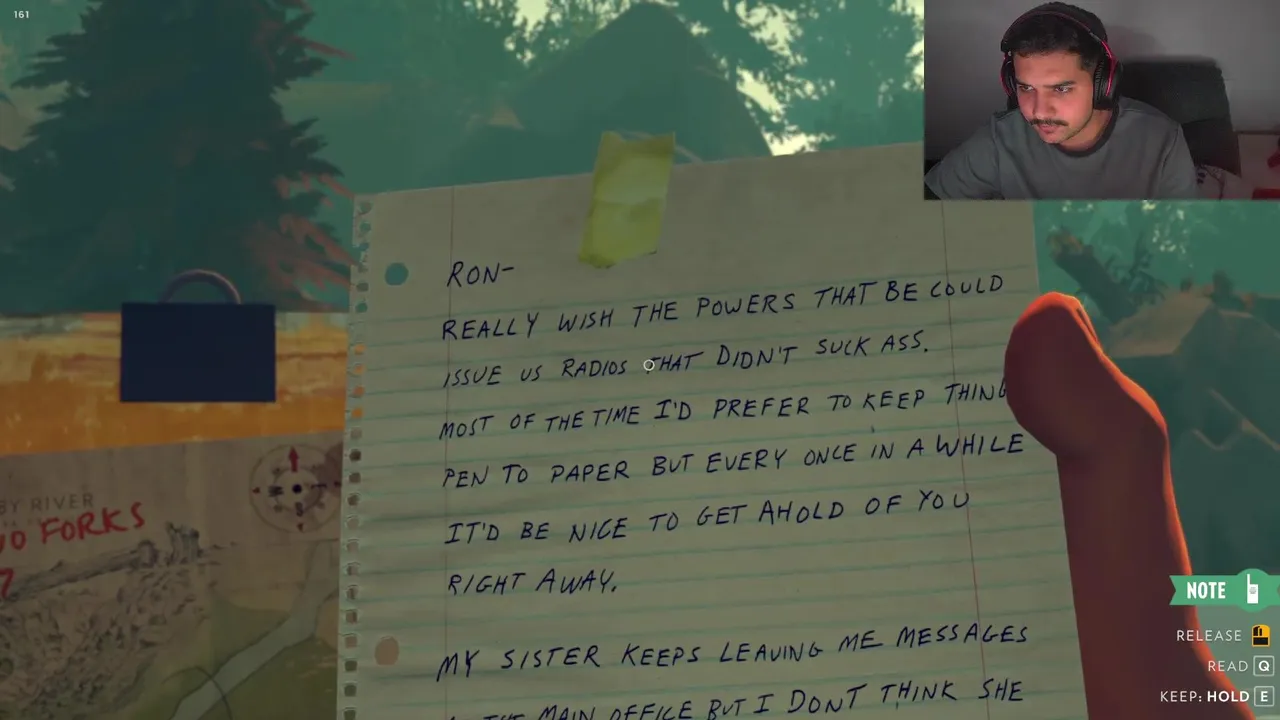 161
RON-
REALLY WISH THE POWERS THAT BE COULD
ISSUE US RADIOS THAT DIDN'T SUCK ASS.
MOST OF THE TIME I'D PREFER TO KEEP THING
PEN TO PAPER BUT EVERY ONCE IN A WHILE
IT'D BE NICE TO GET AHOLD OF YOU
RIGHT AWAY.
MY SISTER KEEPS LEAVING ME MESSAGES
THE MAIN OFFICE BUT I DONT THINK SHE
BY RIVER
FORKS
NOTE
RELEASE
READ Q
KEEP: HOLD E